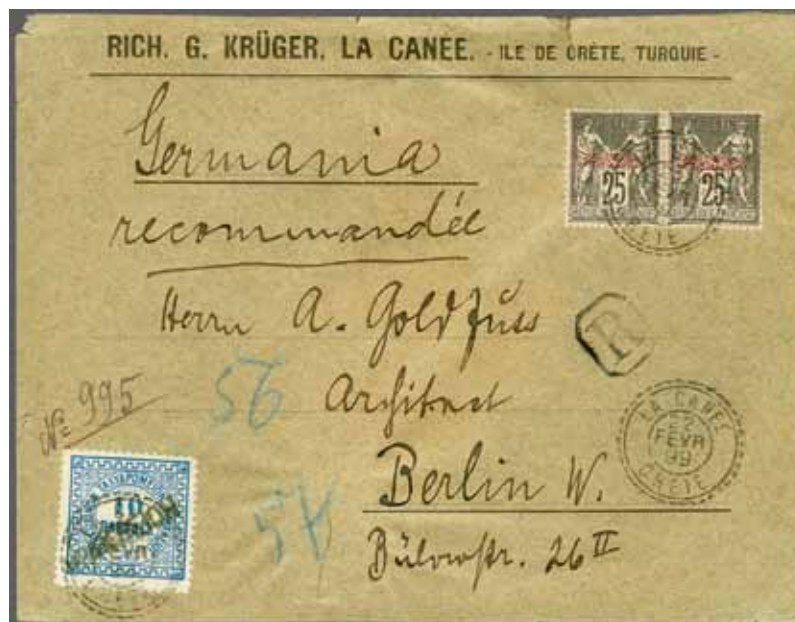 RICH. G. KRÜGER. LA CANEE. - ILE DE CRÈTE, TURQUIE -
Germania
recommandée
25 25
CRETE
Herrn A. Goldfuss
R
56
Architect
No 995
LA CANEE
22
FEVR
99
CRETE
Berlin W.
10
Bülowstr. 26 II